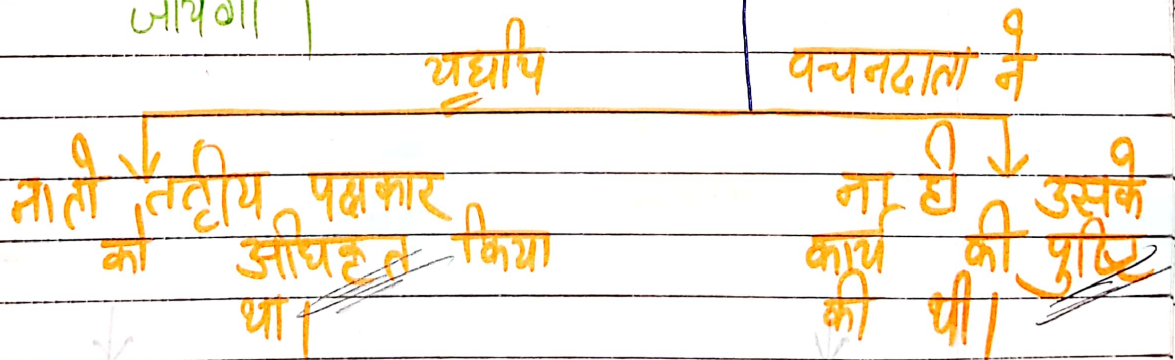 जायेगा।
यद्यपि वचनदाता ने
ना तो तृतीय पक्षकार
को अधिकृत किया
था।
ना ही उसके
कार्य की पुष्टि
की थी।